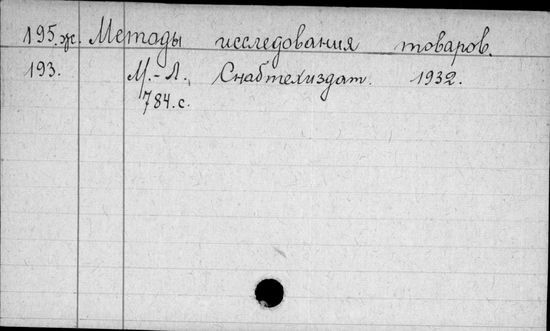 195.ж. Методы исследования товаров.
193. М.-Л., Снабтехиздат. 1932.
784.с.